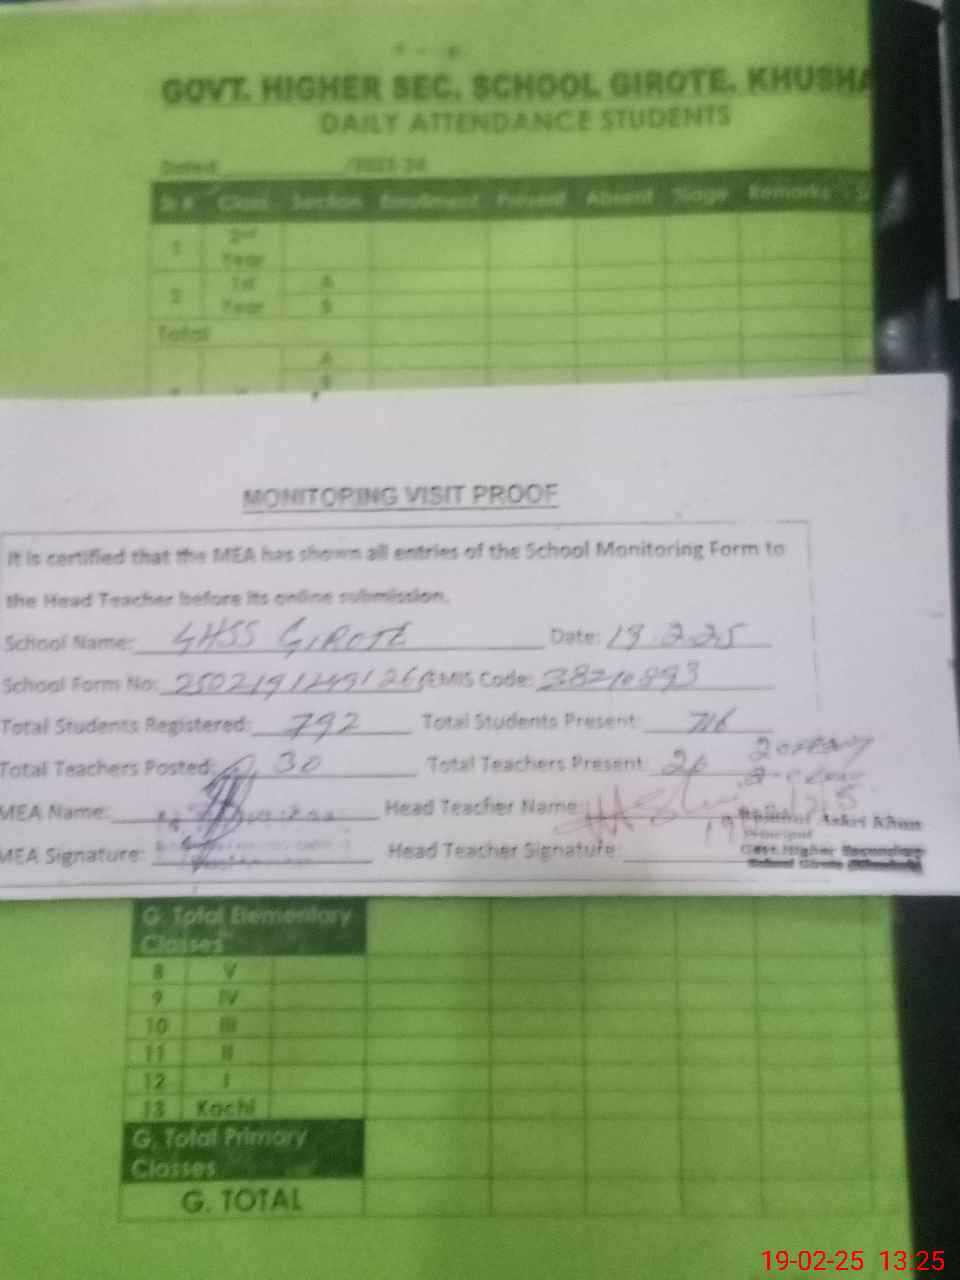 GOVT. HIGHER SEC. SCHOOL GIROTE. KHUSHA
DAILY ATTENDANCE STUDENTS
Dated /2023-24
Sr # Class Section Enrollment Present Absent %age Remarks S
1 2nd Year
2 1st Year A
B
Total
A
B
MONITORING VISIT PROOF
It is certified that the MEA has shown all entries of the School Monitoring Form to
the Head Teacher before its online submission.
School Name: GHSS GIROTE Date: 19.2.25
School Form No: EMIS Code:
Total Students Registered: 792 Total Students Present: 716
Total Teachers Posted: 30 Total Teachers Present: 26
MEA Name: Head Teacher Name:
Principal
MEA Signature: Head Teacher Signature:
Govt. Higher Secondary
School Girote (Khushab)
G. Total Elementary
Classes
8 V
9 IV
10 III
11 II
12 I
13 Kachi
G. Total Primary
Classes
G. TOTAL
19-02-25 13:25